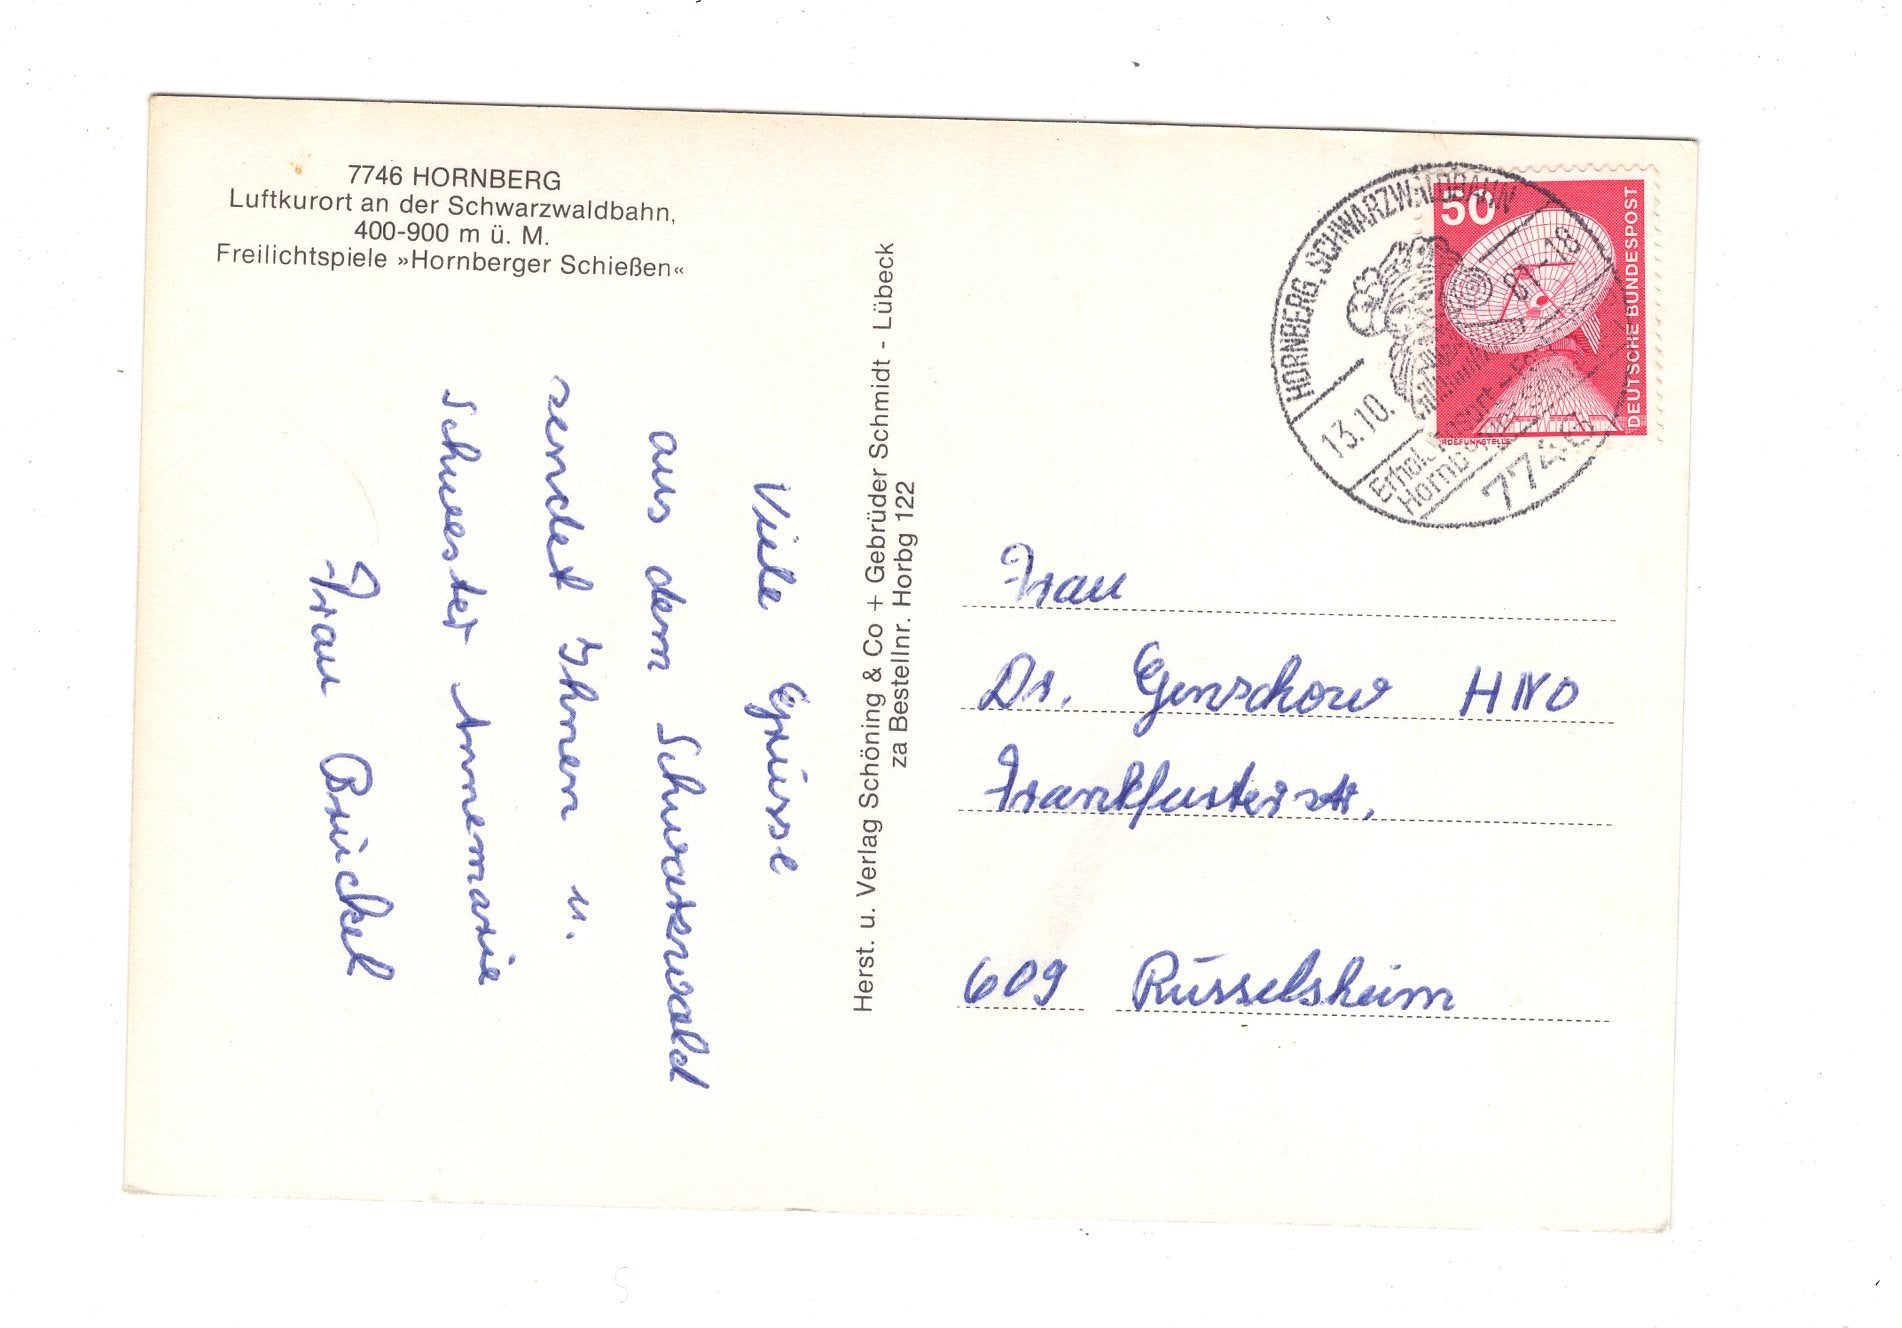 7746 HORNBERG
Luftkurort an der Schwarzwaldbahn,
400-900 m ü. M.
Freilichtspiele »Hornberger Schießen«
Viele Grüsse
aus dem Schwarzwald
sendet Ihnen u.
Schwester Annemarie
Frau Brückel
Herst. u. Verlag Schöning & Co + Gebrüder Schmidt - Lübeck
za Bestellnr. Horbg 122
HORNBERG, SCHWARZWALDBAHN
13.10. 81-18
7746
50
DEUTSCHE BUNDESPOST
Frau
Dr. Genschow HNO
Frankfurterstr.
609 Rüsselsheim